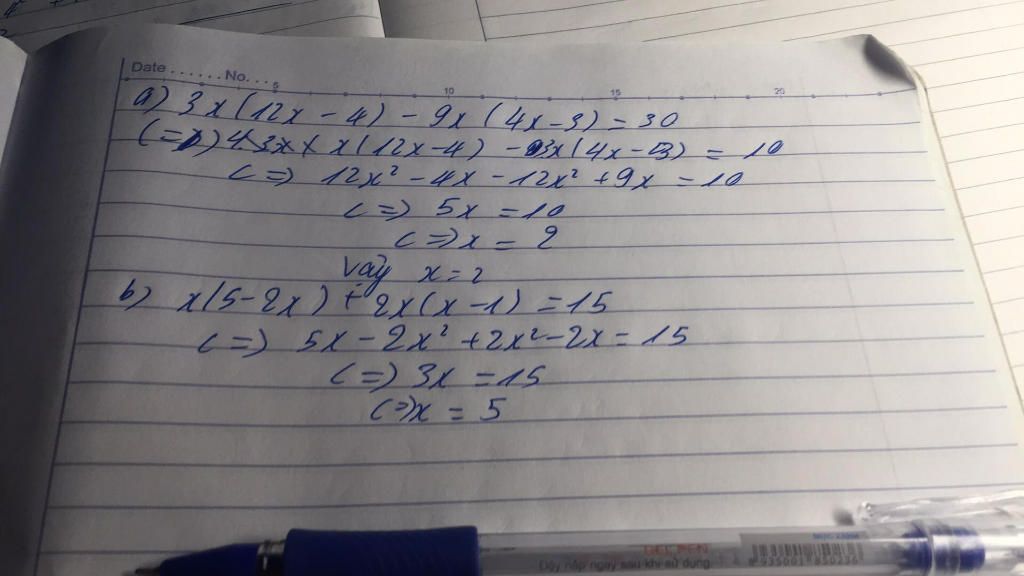 Date ...... No....
5 10 15 20
a) 3x(12x - 4) - 9x (4x - 3) = 30
(=) x(12x - 4) - 3x(4x - 3) = 10
(=) 12x² - 4x - 12x² + 9x = 10
(=) 5x = 10
(=) x = 2
Vậy x = 2
b) x(5 - 2x) + 2x(x - 1) = 15
(=) 5x - 2x² + 2x² - 2x = 15
(=) 3x = 15
(=) x = 5
Đậy nắp ngay sau khi sử dụng
8 935001 850236